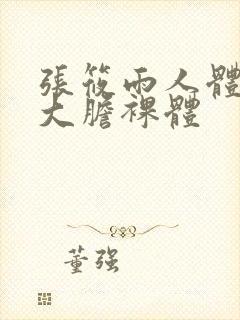 張筱雨人體
大膽裸體
董强